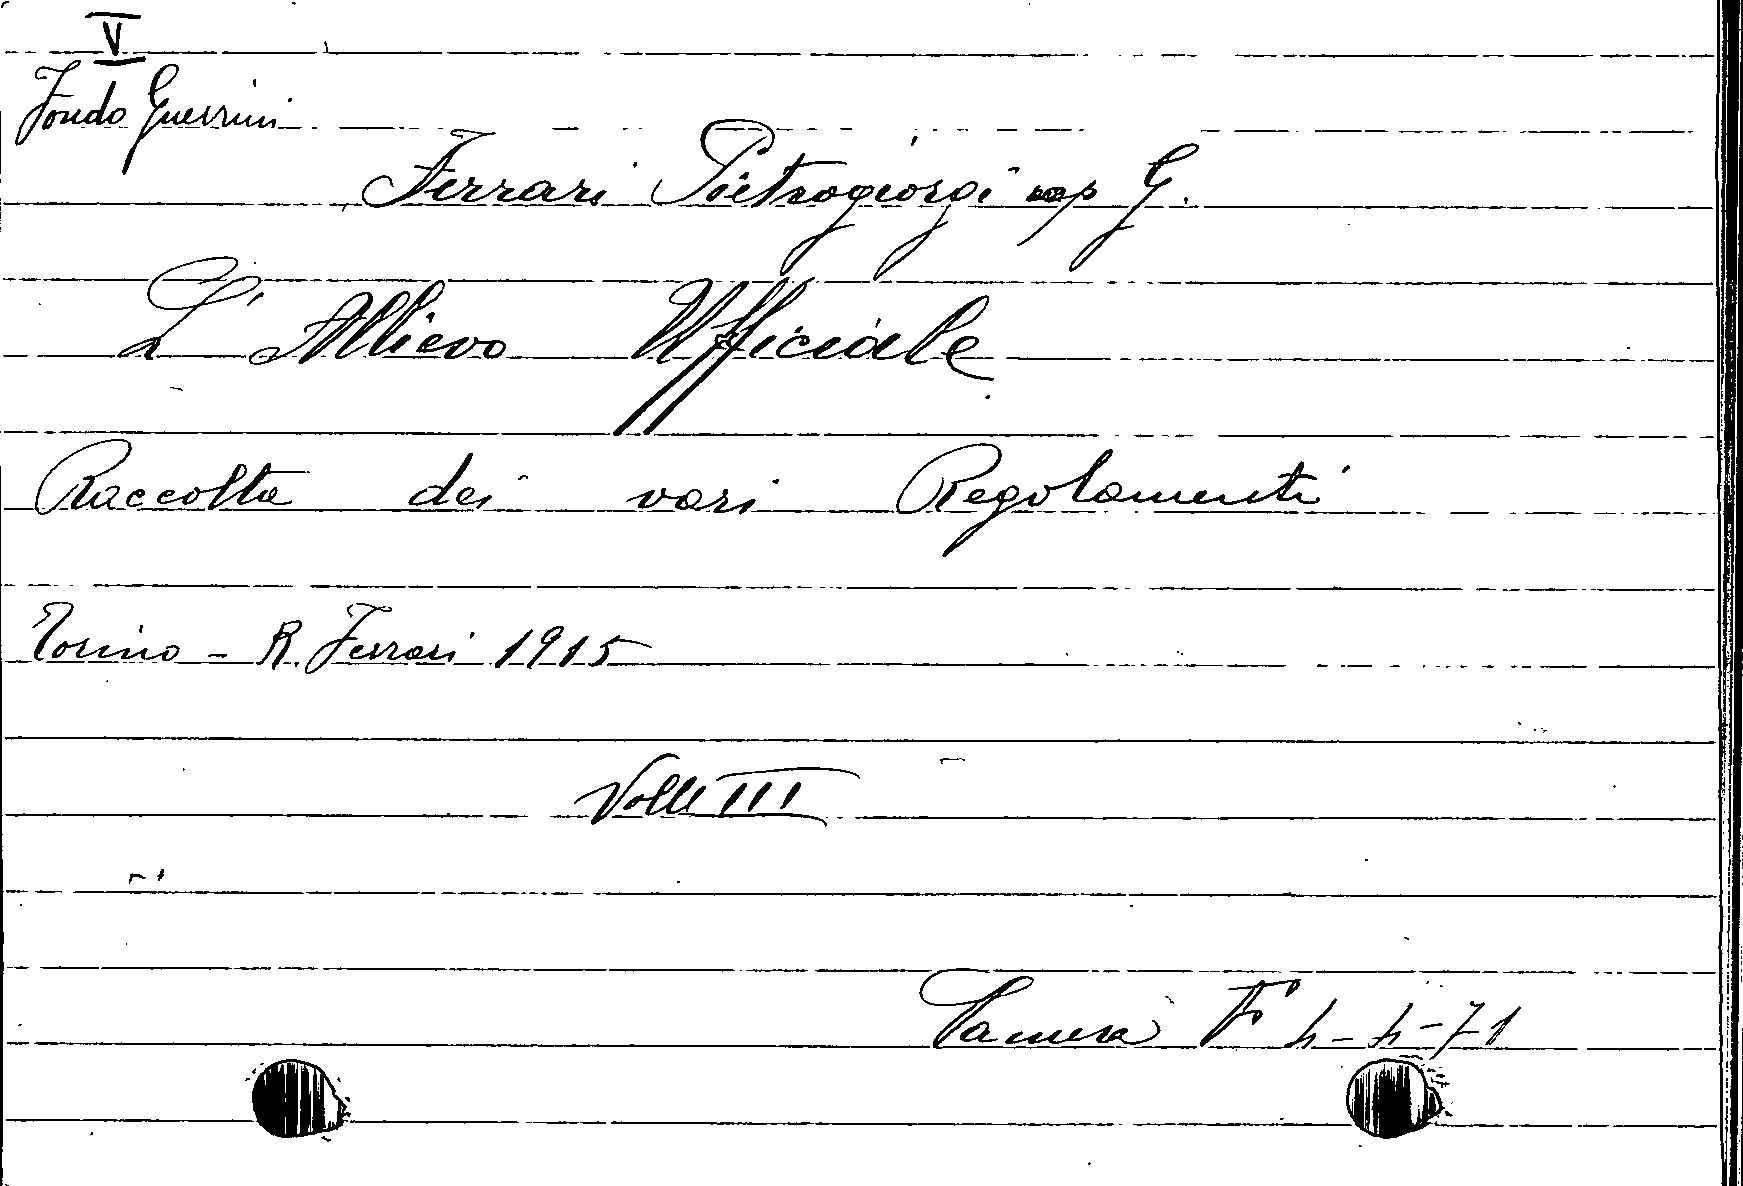 V
Fondo Guerrini
Ferrari Pietrogiorgi cap G.
L'Allievo Ufficiale
Raccolta dei vari Regolamenti
Torino - R. Ferrari 1915
Volli III
Camera F 4-4-71